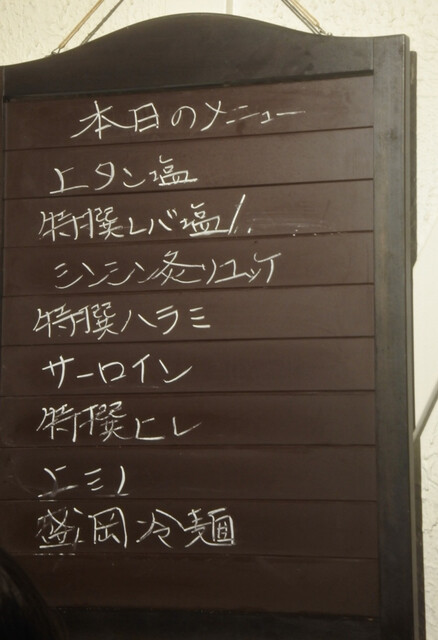 本日のメニュー
上タン塩
特撰レバ塩
シンシン炙りユッケ
特撰ハラミ
サーロイン
特撰ヒレ
上ミノ
盛岡冷麺